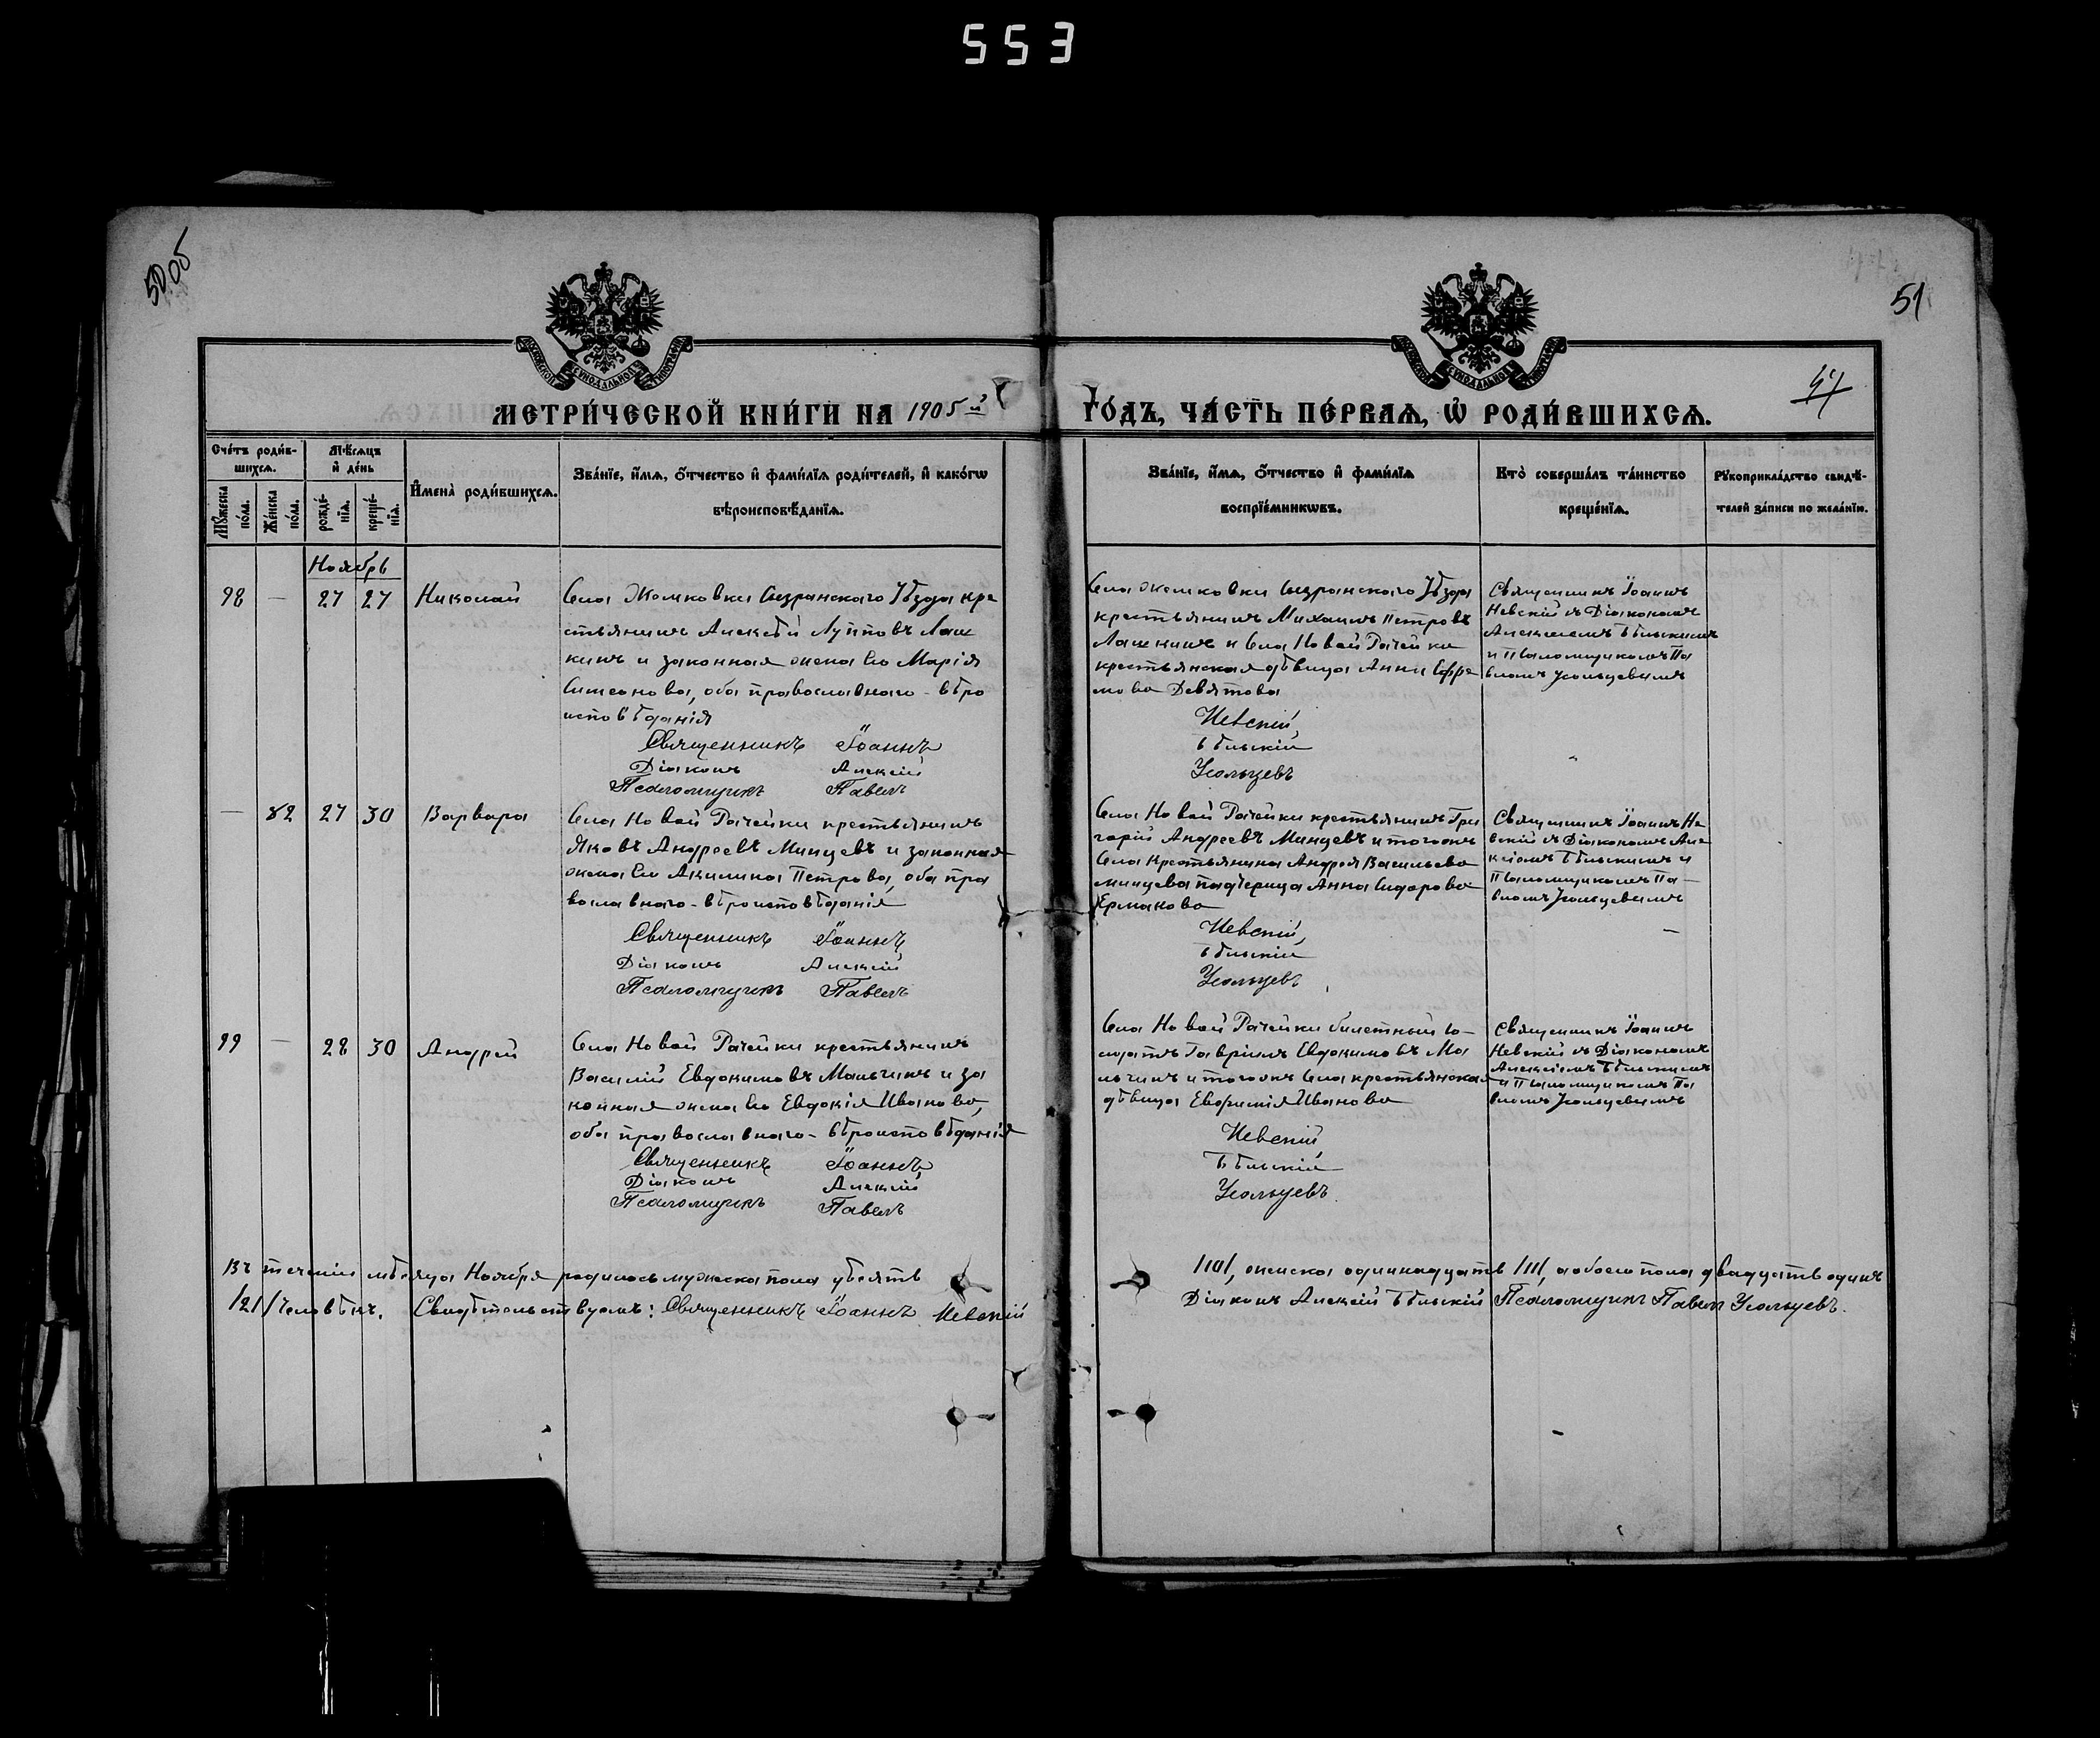 553
50об
51
47
МЕТРИ́ЧЕСКОЙ КНИ́ГИ НА 1905й
ГО́ДЪ, ЧА́СТЬ ПЕ́РВАѦ, Ѡ҆ РОДИ́ВШИХСѦ.
Сче́тъ роди́в-
шихсѧ.
Мѣ́сѧцъ
и҆ де́нь
Мꙋ́жеска
по́ла.
Же́нска
по́ла.
рожде́-
нїѧ.
креще́-
нїѧ.
И҆мена̀ роди́вшихсѧ.
Зва́нїе, и҆́мѧ, ѻ҆́тчество и҆ фами́лїѧ роди́телей, и҆ како́гѡ
вѣроисповѣ́данїѧ.
Зва́нїе, и҆́мѧ, ѻ҆́тчество и҆ фами́лїѧ
воспрїе́мникѡвъ.
Кто̀ соверша́лъ та́инство
креще́нїѧ.
Рꙋкоприкла́дство свидѣ́-
телей за́писи по жела́нїю.
Ноябрь
98 — 27 27 Николай
Села Жемковки Сызранскаго Уѣзда кре
стьянинъ Алексѣй Лупповъ Лаш
кинъ и законная жена его Марія
Симеонова, оба православнаго - вѣро
исповѣданія
Священникъ Іоаннъ
Діаконъ Алексій
Псаломщикъ Павелъ
Села Жемковки Сызранскаго Уѣзда
крестьянинъ Михаилъ Петровъ
Лашкинъ и Села Новой Рачейки
крестьянская дѣвица Анна Ефре
мова Девятова
Невскій,
Бѣльскій
Усольцевъ
Священникъ Іоаннъ
Невскій съ Діакономъ
Алексіемъ Бѣльскимъ
и Псаломщикомъ Па
вломъ Усольцевымъ
— 82 27 30 Варвара
Села Новой Рачейки крестьянинъ
Яковъ Андреевъ Минцевъ и законная
жена его Акилина Петрова, оба пра
вославнаго - вѣроисповѣданія
Священникъ Іоаннъ
Діаконъ Алексій
Псаломщикъ Павелъ
Села Новой Рачейки крестьянинъ Гри
горій Андреевъ Минцевъ и тогоже
Села крестьянина Андрея Васильева
Минцева падчерица Анна Сидорова
Ермакова
Невскій,
Бѣльскій
Усольцевъ
Священникъ Іоаннъ Не
вскій съ Діакономъ Але
ксіемъ Бѣльскимъ и
Псаломщикомъ Па-
вломъ Усольцевымъ
99 — 28 30 Андрей
Села Новой Рачейки крестьянинъ
Василій Евдокимовъ Мальчинъ и за
конная жена его Евдокія Иванова,
оба православнаго - вѣроисповѣданія
Священникъ Іоаннъ
Діаконъ Алексій
Псаломщикъ Павелъ
Села Новой Рачейки билетный со-
лдатъ Гавріилъ Евдокимовъ Ма
льчинъ и тогоже Села крестьянская
дѣвица Евфимія Иванова
Невскій
Бѣльскій
Усольцевъ.
Священникъ Іоаннъ
Невскій съ Діакономъ
Алексіемъ Бѣльскимъ
и Псаломщикомъ Па
вломъ Усольцевымъ
Въ теченіи мѣсяца Ноября родилось мужеска пола десять /10/, женска одиннадцать /11/, а обоего пола двадцать одинъ
/21/ Человѣкъ. Свидѣтельствуемъ: Священникъ Іоаннъ Невскій Діаконъ Алексій Бѣльскій Псаломщикъ Павелъ Усольцевъ.